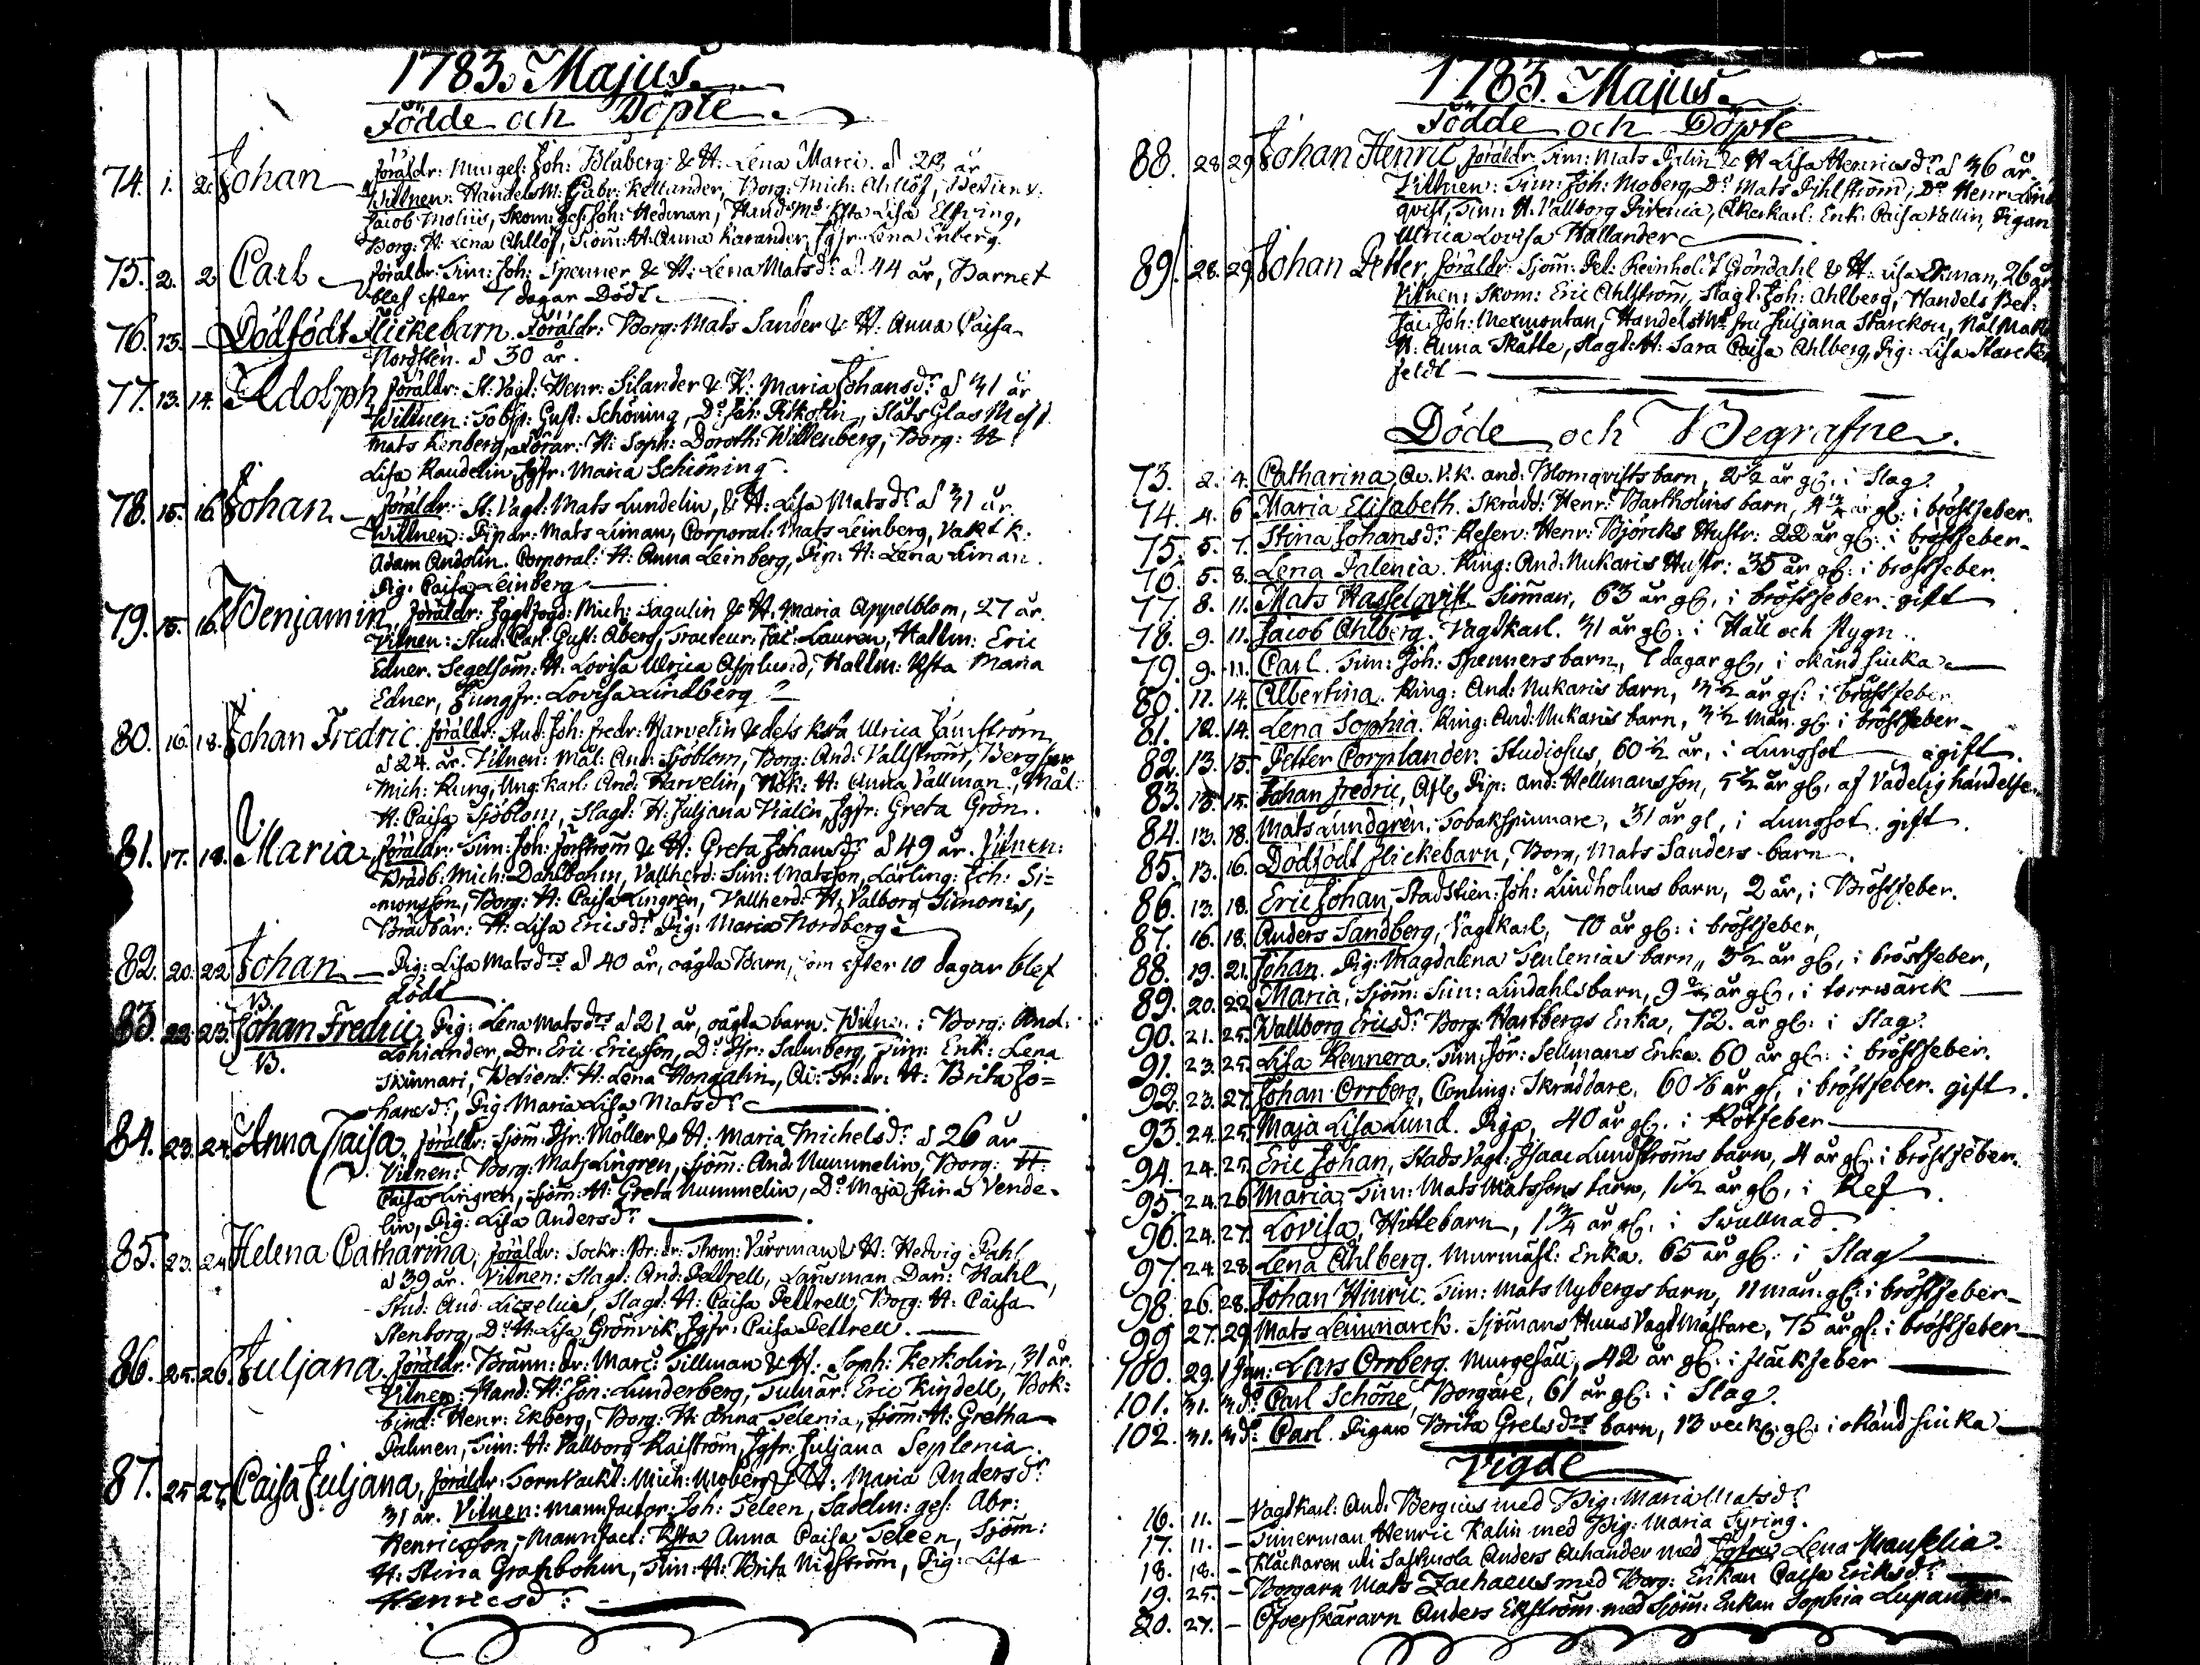 1783. Majus.
Födde och Döpte.
74. 1. 2. Johan Föräldr: Murgel: Joh: Blåberg: & H: Lena Marci. å 23 år
Wittnen: HandelsM: Gabr: Kellander, Borg: Mich: Ahllöf, Betient:
Jacob Molius, Skom: ges: Joh: Hedman, Hand: Ms Lisa Elfving,
Borg: H: Lena Ahllöf, Sjöm: H: Anna Karander, Jgfr: Lena Enberg.
75. 2. 2. Carl Föräldr: Tim: Joh: Spenner & H: Lena Matsdr å 44 år, Barnet
blef efter 7 dagar Dödt
76. 13. — Dödfödt Flickebarn. Föräldr: Borg: Mats Sander & H: Anna Caisa
Nordsten. å 30 år.
77. 13. 14. Adolph Föräldr: St: Vagt: Henr: Silander & H: Maria Johansdr å 31 år
Wittnen: Tobsp: Gust: Schöning, Do Joh: Stats Glas Mest
Mats Renberg, Förar: H: Soph: Doroth: Wittenberg, Borg: H:
Lisa Randelin, Jgfr: Maria Schiöning.
78. 15. 16. Johan Föräldr: St: Vagt: Mats Lundelin, & H: Lisa Matsdr å 31 år.
Wittnen: Pipdr: Mats Liman, Corporal: Mats Leinberg, Vakt k:
Adam Andolin. Corporal: H: Anna Leinberg, Pip: H: Lena Liman.
Pig: Caisa Leinberg
79. 15. 16. Benjamin, Föräldr: Mich: Sagulin & H. Maria Appelblom, 27 år.
Vitnen: Stud: Carl Gust: Åberg, Tracteur: Jac: Lauren, Hattm: Eric
Edner. Segelsöm: H: Lovisa Ulrica Asplund, Hattm: Maria
Edner, Jungfr: Lovisa Lindberg
80. 16. 18. Johan Fredric. Föräldr: Stud: Joh: Fredr: Harvelin & dess k:ra Ulrica Jämström
å 24 år. Vitnen: Mål: And: Sjöblom, Borg: And: Vallström, Borg
Mich: Rung, Ung: karl: And: Harvelin, Bok: H: Anna Vallman, Mål:
H: Caisa Sjöblom, Slagt: H: Juljana Vialen, Jgfr: Greta Grön.
81. 17. 18. Maria, Föräldr: Tim: Joh: Forström & H: Greta Johansdr å 49 år. Vitnen:
Brädb: Mich: Dahlbohm, Vallherd: Sim: Matsson, Lärling: Joh: Si=
monsson, Borg: H: Caisa Lingren, Vallherd: H: Valborg Simonis,
Brädbär: H: Lisa Ericsdr Pig: Maria Nordberg
82. 20. 22. Johan — Pig: Lisa Matsdrs å 40 år, oägta Barn, som efter 10 dagar blef
Dödt
83. 22. 23. Johan Fredric, Pig: Lena Matsdrs å 21 år, oägta barn. Witnen: Borg: And:
Lohiander, Dr: Eric Ericsson, Do Salmberg, Tim: Enk: Lena
Skinnari, Betient: H: Lena Hongalin, H: Brita Jo=
hansdr, Pig: Maria Lisa Matsdr
84. 23. 24. Anna Caisa, Föräldr: Sjöm: Möller & H: Maria Michelsdr å 26 år
Vitnen: Borg: Mats Lingren, Sjöm: And: Nummelin, Borg: H:
Caisa Lingren, Sjöm: H: Greta Nummelin, Do Maja Stina Vende-
lin, Pig: Lisa Andersdr
85. 23. 24. Helena Catharina, Föräldr: Sockr: Br: dr: Thom: Värrman & H: Hedvig
å 39 år. Vitnen: Slagt: And: Pettrell, Länsman Dan: Hahl,
Stud: And: Lizelius, Slagt: H: Caisa Pettrell, Borg: H: Caisa
Stenborg, Do H: Lisa Grönvik, Jgfr: Caisa Pettrell.
86. 25. 26. Juljana. Föräldr: Bränn: dr: Marc: Tillman & H. Soph: Kerkolin, 31 år.
Vitnen: Hand: Jon: Lunderberg, Tulnär: Eric Kindell, Bok:
bind: Henr: Ekberg, Borg: H: Anna Telenia, Sjöm: H: Gretha
Palmen, Tim: H: Vallborg Kaiström, Jgfr: Juljana Seplenia.
87. 25. 27. Caisa Juljana, Föräldr: Tornvackt: Mich: Moberg & H: Maria Andersdr
31 år. Vitnen: Manufactor: Joh: Teleen, Sadelm: ges: Abr:
Henricsson, Manufact: Anna Caisa Teleen, Sjöm:
H: Stina Grahbohm, Tim: H: Brita Nyström, Pig: Lisa
Henricsdr
1783. Majus.
Födde och Döpte
88. 28. 29. Johan Henric Föräldr: Tim: Mats & H: Lisa Henricsdr å 36 år.
Vitnen: Tim: Joh: Moberg, Do Mats Pihlström, Do Henr: Lind
qvist, Tim: H: Vallborg Åkerkarl: Enk: Caisa Pigan
Ulrica Lovisa Hallander
89. 28. 29. Johan Petter, Föräldr: Sjöm: Pet: Reinholdt Gröndahl & H: Lisa Ekman, 26 år
Vitnen: Skom: Eric Ahlström, Slagt: Joh: Ahlberg, Handels Bet:
Jac: Joh: Mexmontan, Handelst: Fru Juljana Starckou, Nål
H: Anna Skatte, Slagt: H: Sara Caisa Ahlberg, Pig: Lisa Starcken
feldt
Döde och Begrafne.
73. 2. 4. Catharina, And: Blomqvists barn, 2 1/2 år gl: i Slag
74. 4. 6. Maria Elisabeth. Skrädd: Henr: Bartholins barn, i bröstfeber.
75. 5. 7. Stina Johansdr Reserv: Henr: Björcks Hustr: 22 år gl: i bröstfeber
76. 5. 8. Lena Palenia. Ring: And: Nukaris Hustr: 35 år gl: i bröstfeber.
77. 8. 11. Mats Hasselqvist. Sjöman, 63 år gl, i bröstfeber. gift
78. 9. 11. Jacob Ahlberg. Vagtkarl. 31 år gl: i Håll och Stygn.
79. 9. 11. Carl. Tim: Joh: Spenners barn, 7 dagar gl, i okänd siuka
80. 11. 14. Albertina. Ring: And: Nukaris barn, 3 1/2 år gl: i bröstfeber
81. 12. 14. Lena Sophia. Ring: And: Nukaris barn, 3 1/2 mån. gl. i bröstfeber
82. 13. 15. Petter Corplander. Studiosus, 60 1/2 år, i Lungsot — ogift.
83. 13. 15. Johan Fredric, Afl. Pip: And: Hellmans son, 5 1/2 år gl, af Vådelig händelse.
84. 13. 18. Mats Lundgren. Tobaksspinnare, 31 år gl, i Lungsot. gift.
85. 13. 16. Dödfödt flickebarn, Borg, Mats Sanders barn.
86. 13. 18. Eric Johan, Stadstien: Joh: Lindholms barn, 2 år, i Bröstfeber.
87. 16. 18. Anders Sandberg, Vagtkarl, 70 år gl: i bröstfeber,
88. 19. 21. Johan. Pig: Magdalena Teulenias barn, 3 1/2 år gl, i bröstfeber,
89. 20. 22. Maria, Sjöm: Sim: Lindahls barn, år gl, i torrwärck
90. 21. 25. Wallborg Ericsdr Borg: Hartbergs Enka, 72. år gl: i Slag.
91. 23. 25. Lisa Rennera. Tim: Jör: Sellmans Enka. 60 år gl: i bröstfeber.
92. 23. 27. Johan Orrberg, Conting: Skräddare. 60 1/6 år gl, i bröstfeber. gift.
93. 24. 25. Maja Lisa Lund. Piga, 40 år gl. i Rötfeber
94. 24. 25. Eric Johan, Stads Vagt: Isaac Lundströms barn, 4 år gl: i bröstfeber.
95. 24. 26. Maria, Tim: Mats Matssons barn, 1 1/2 år gl, i Ref
96. 24. 27. Lovisa, Hittebarn, 1 3/4 år gl. i Swullnad.
97. 24. 28. Lena Ahlberg. Murmäst: Enka. 65 år gl: i Slag
98. 26. 28. Johan Hinric. Tim: Mats Nybergs barn, 11 mån: gl: i bröstfeber
99. 27. 29. Mats Lennmarck. Sjömans Huus Vagtmästare, 75 år gl: i bröstfeber
100. 29. 1 Jun: Lars Orrberg. Murgesäll, 42 år gl: i fläckfeber
101. 31. 3 do Carl Schöne, Borgare, 61 år gl: i Slag.
102. 31. 3 do Carl. Pigan Brita Grelsdrs barn, 13 veck. gl: i okänd siuka
Vigde
16. 11. — Vagtkarl: And: Bergius med Pig: Maria Matsdr
17. 11. — Timerman Henric Kalin med Pig: Maria Syring.
18. 18. — Kläckaren uti Sastmola Anders Achander med Jgfru Lena Mauselia.
19. 25. — Borgarn Mats Zachaeus med Borg: Enkan Caisa Eriksdr
20. 27. — Öfverskärarn Anders Ekström med Sjöm: Enkan Sophia Lupander